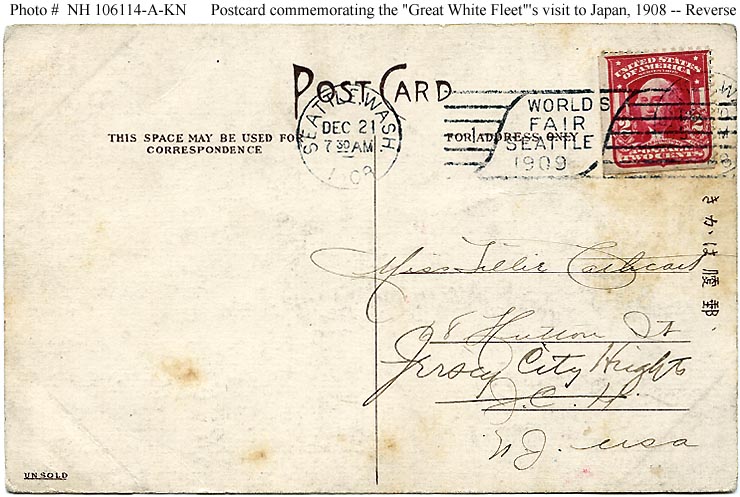 Photo # NH 106114-A-KN Postcard commemorating the "Great White Fleet"'s visit to Japan, 1908 -- Reverse
POST CARD
THIS SPACE MAY BE USED FOR
CORRESPONDENCE
SEATTLE, WASH.
DEC 21
7 30 AM
FOR ADDRESS ONLY
WORLDS
FAIR
SEATTLE
1909
UNITED STATES
OF AMERICA
TWO CENTS
きかは便郵
Miss Lillie Cathcart
98 Hutton St
Jersey City Heights
J.C.H.
N J. USA
UNSOLD